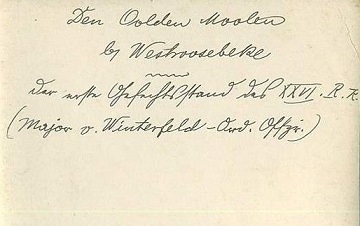 Den Oolden Moolen
by Westroosebeke
der erste Gefechtsstand des XXVI. R. K.
(Major v. Winterfeld - Ord. Offzr.)